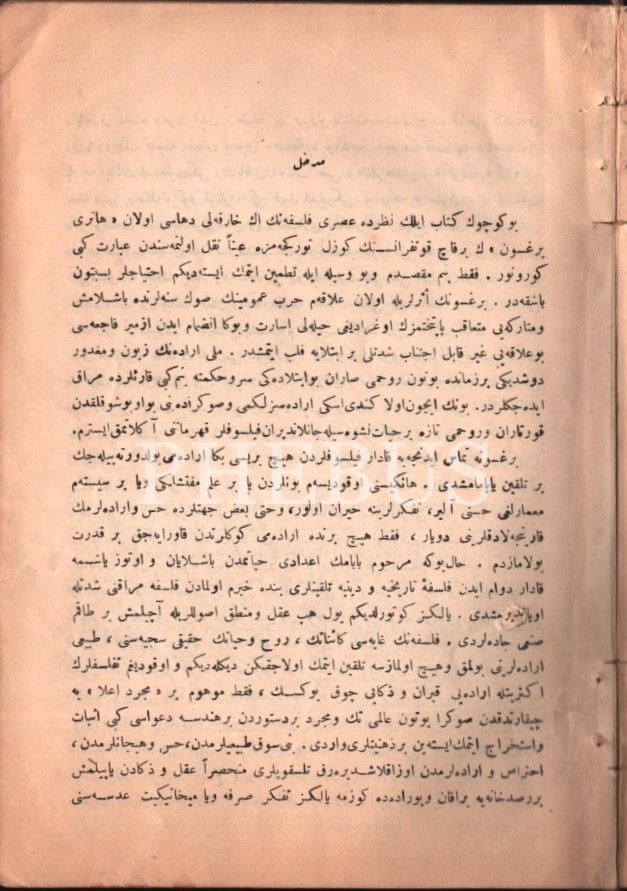 مدخل
بوكوچوك كتاب ایلك نظرده عصری فلسفه‌نك اك خارقه‌لی دهاسی اولان « هانری
برغسون » ك برقاچ قونفرانسنك كوزل توركجه‌مزه عیناً نقل اولنمه‌سندن عبارت كبی
كورونور . فقط بنم مقصدم وبو وسیله ایله تطمین ایتمك ایسته‌دیكم احتیاجلر بسبتون
باشقه‌در . برغسونك أثرلریله اولان علاقه‌م حرب عمومینك صوك سنه‌لرنده باشلامش
ومتاركه‌یی متعاقب پایتختمزك اوغرادیغی حیله‌لی اسارت وبوكا انضمام ایدن ازمیر فاجعه‌سی
بوعلاقه‌یی غیر قابل اجتناب شدتلی بر ابتلایه قلب ایتمشدر . ملی اراده‌نك زبون ومغدور
دوشدیكی برزمانده بوتون روحمی صاران بوابتلاده‌كی سروحكمته بنم كبی قارئلرده مراق
ایده‌جكلردر. بونك ایچون اولا كندی‌اسكی اراده‌سزلكمی وصوكره‌ده‌نی بواوبوشوقلقدن
قورتاران وروحمی تازه برحیات نشوه‌سیله جانلاندیران فیلسوفلر قهرمانی آ كلاتمق ایسترم.
برغسونه تماس ایدنجه‌یه قادار فیلسوفلردن هیچ بریسی بكا اراده‌می بولدورته‌بیله‌جك
بر تلقین یاپامامشدی . هانكیسنی اوقودیسه‌م بونلردن یا بر علم مفتشلكی ویا بر سیسته‌م
معمارلغی حسنی آلیر، تفكرلرینه حیران اولور، وحتی بعض جهتلرده حس واراده‌لرمك
قارینجه‌لادقلرینی دویار ، فقط هیچ برنده اراده‌می كوكلرندن قاورایه‌جق بر قدرت
بولامازدم . حال‌بوكه مرحوم بابامك اعدادی حیاتمدن باشلایان و اوتوز یاشمه
قادار دوام ایدن فلسفهٔ تاریخیه و دینیه تلقینلری بنده خبرم اولمادن فلسفه مراقنی شدتله
اویاندیرمشدی . یالكز كوتورلدیكم یول هپ عقل ومنطق اصوللریله آچیلمش بر طاقم
صنعی جاده‌لردی . فلسفه‌نك غایه‌سی كائناتك ، روح وحیاتك حقیقی سجیه‌سنی ، طبیعی
اراده‌لرینی بولمق وهیچ اولمازسه تلقین ایتمك اولاجقكن دیكله‌دیكم و اوقودیغم تفلسفلرك
اكثریتله اراده‌یی قیران و ذكایی چوق یوكسك ، فقط موهوم بر « مجرد اعلا » یه
چیقارندقدن صوكرا بوتون عالمی تك ومجرد بردستوردن برهندسه دعواسی كبی اثبات
واستخراج ایتمك ایسته‌ین برذهنیتلری واردی . بنی‌سوق طبیعیلرمدن، حس وهیجانلرمدن،
احتراص و اراده‌لرمدن اوزاقلاشدیره‌رق تلسقوپلری منحصراً عقل و ذكادن یاپیلمش
بررصدخانه‌یه براقان وبوراده‌ده كوزمه یالكز تفكر صرفه ویا میخانیكیت عدسه‌سنی